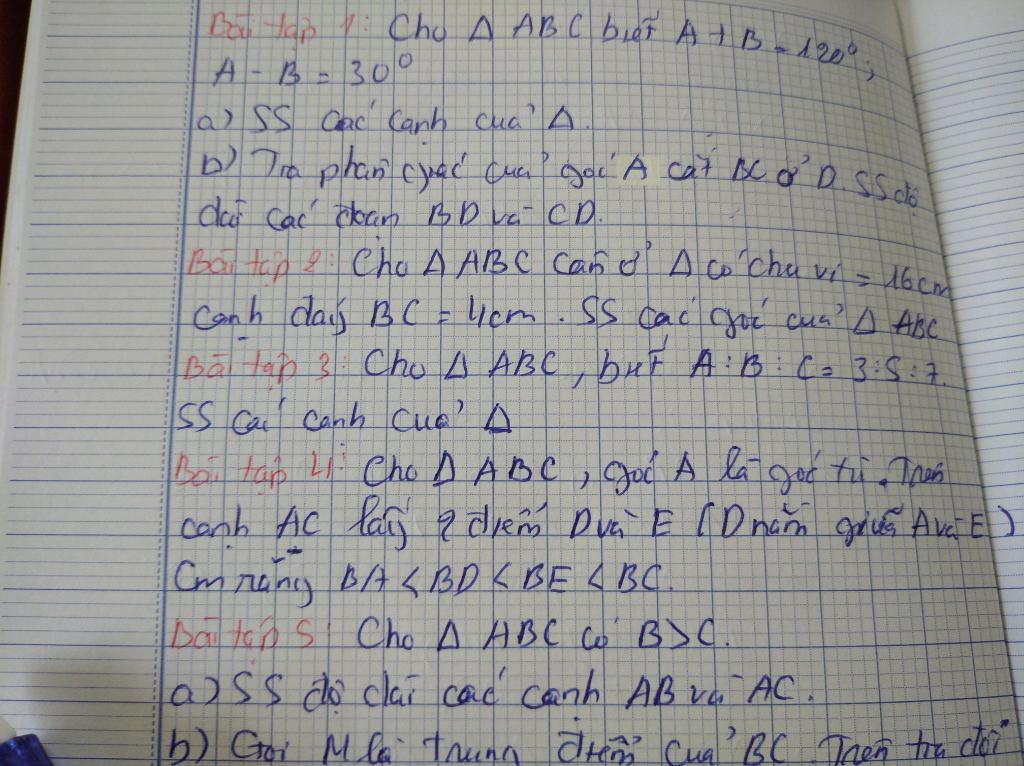 Bài tập 1: Cho Δ ABC biết A + B = 120°;
A - B = 30°
a) SS các cạnh của Δ.
b) Tia phân giác của góc A cắt BC ở D. SS độ
dài các đoạn BD và CD.
Bài tập 2: Cho Δ ABC cân ở A có chu vi = 16cm
cạnh đáy BC = 4cm. SS các góc của Δ ABC
Bài tập 3: Cho Δ ABC, biết A : B : C = 3 : 5 : 7.
SS các cạnh của Δ
Bài tập 4: Cho Δ ABC, góc A là góc tù. Trên
cạnh AC lấy 2 điểm D và E (D nằm giữa A và E)
Cm rằng BA < BD < BE < BC.
Bài tập 5: Cho Δ ABC có B > C.
a) SS độ dài các cạnh AB và AC.
b) Gọi M là trung điểm của BC. Trên tia đối